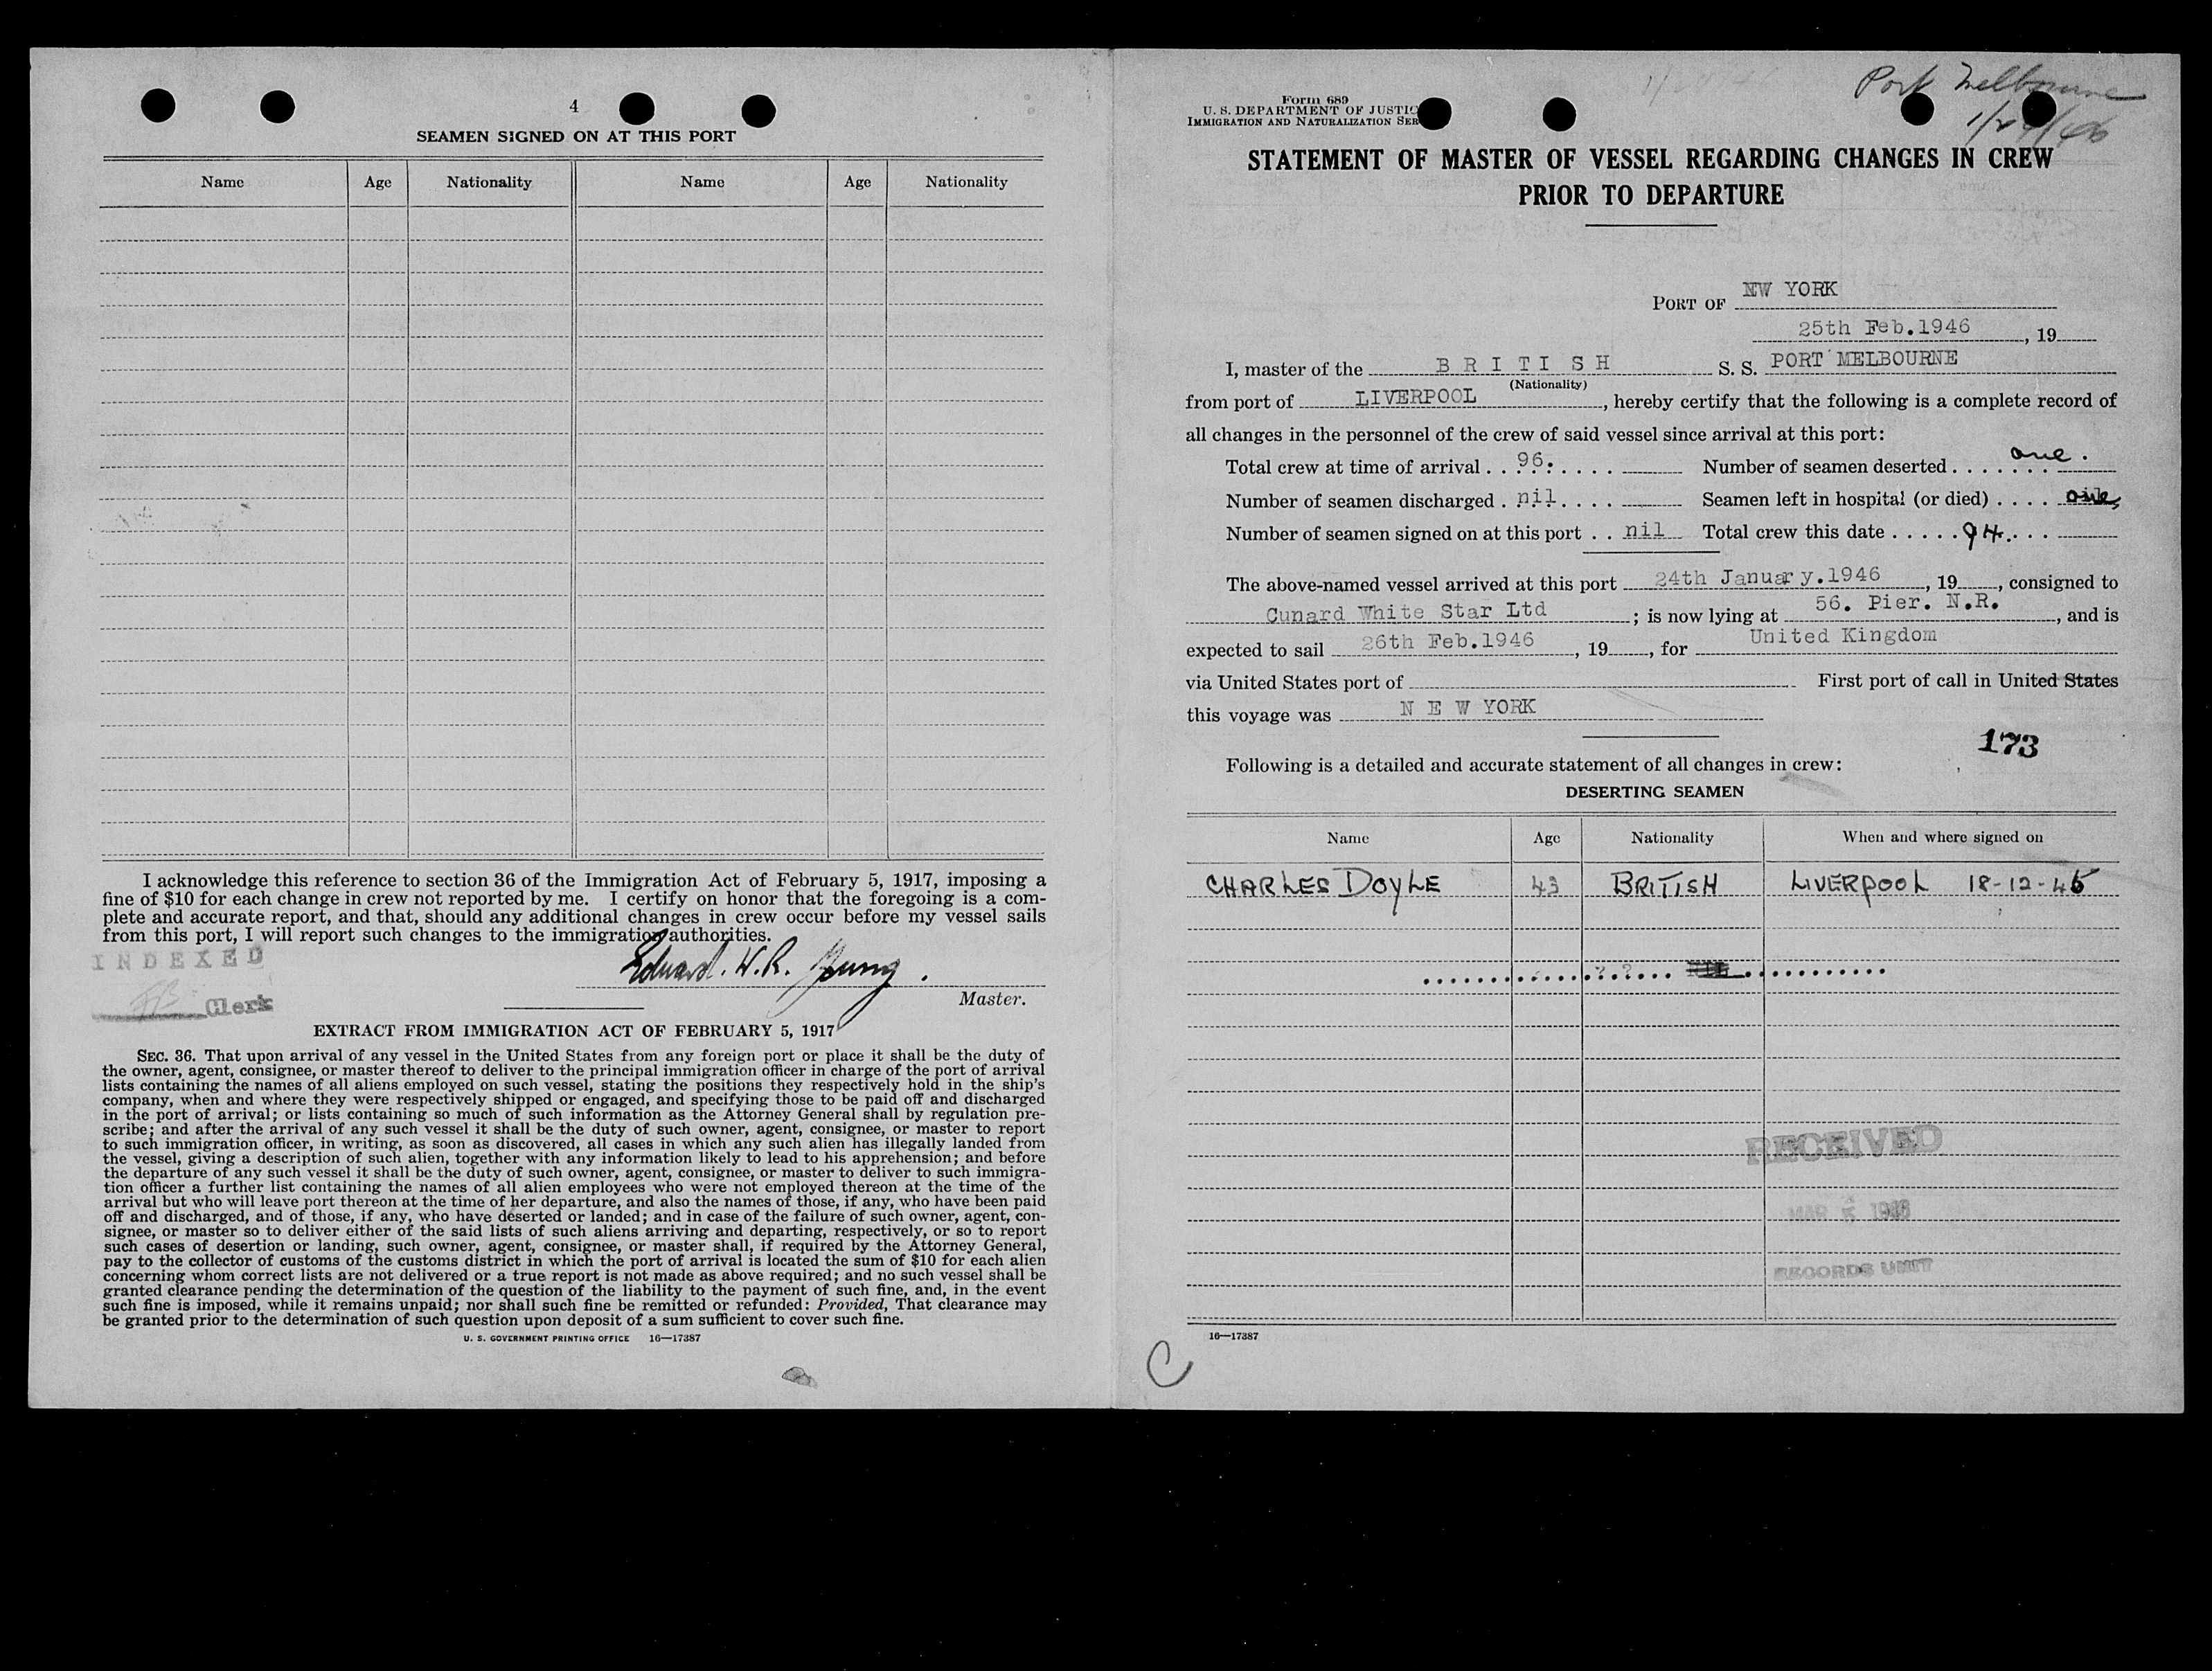 4
SEAMEN SIGNED ON AT THIS PORT
Name Age Nationality Name Age Nationality
I acknowledge this reference to section 36 of the Immigration Act of February 5, 1917, imposing a
fine of $10 for each change in crew not reported by me. I certify on honor that the foregoing is a com-
plete and accurate report, and that, should any additional changes in crew occur before my vessel sails
from this port, I will report such changes to the immigration authorities.
INDEXED
Edward. W.R. Young.
Clerk
Master.
EXTRACT FROM IMMIGRATION ACT OF FEBRUARY 5, 1917
SEC. 36. That upon arrival of any vessel in the United States from any foreign port or place it shall be the duty of
the owner, agent, consignee, or master thereof to deliver to the principal immigration officer in charge of the port of arrival
lists containing the names of all aliens employed on such vessel, stating the positions they respectively hold in the ship's
company, when and where they were respectively shipped or engaged, and specifying those to be paid off and discharged
in the port of arrival; or lists containing so much of such information as the Attorney General shall by regulation pre-
scribe; and after the arrival of any such vessel it shall be the duty of such owner, agent, consignee, or master to report
to such immigration officer, in writing, as soon as discovered, all cases in which any such alien has illegally landed from
the vessel, giving a description of such alien, together with any information likely to lead to his apprehension; and before
the departure of any such vessel it shall be the duty of such owner, agent, consignee, or master to deliver to such immigra-
tion officer a further list containing the names of all alien employees who were not employed thereon at the time of the
arrival but who will leave port thereon at the time of her departure, and also the names of those, if any, who have been paid
off and discharged, and of those, if any, who have deserted or landed; and in case of the failure of such owner, agent, con-
signee, or master so to deliver either of the said lists of such aliens arriving and departing, respectively, or so to report
such cases of desertion or landing, such owner, agent, consignee, or master shall, if required by the Attorney General,
pay to the collector of customs of the customs district in which the port of arrival is located the sum of $10 for each alien
concerning whom correct lists are not delivered or a true report is not made as above required; and no such vessel shall be
granted clearance pending the determination of the question of the liability to the payment of such fine, and, in the event
such fine is imposed, while it remains unpaid; nor shall such fine be remitted or refunded: Provided, That clearance may
be granted prior to the determination of such question upon deposit of a sum sufficient to cover such fine.
U. S. GOVERNMENT PRINTING OFFICE 16—17387
Port Melbourne
1/24/46
Form 689
U. S. DEPARTMENT OF JUSTIC
IMMIGRATION AND NATURALIZATION SER
STATEMENT OF MASTER OF VESSEL REGARDING CHANGES IN CREW
PRIOR TO DEPARTURE
PORT OF NEW YORK
25th Feb.1946, 19
I, master of the BRITISH S. S. PORT MELBOURNE
(Nationality)
from port of LIVERPOOL, hereby certify that the following is a complete record of
all changes in the personnel of the crew of said vessel since arrival at this port:
Total crew at time of arrival . . 96. . . . . Number of seamen deserted . . . . . . . one.
Number of seamen discharged . nil. . . . Seamen left in hospital (or died) . . . . one
Number of seamen signed on at this port . . nil Total crew this date . . . . . 94. . . .
The above-named vessel arrived at this port 24th January.1946, 19, consigned to
Cunard White Star Ltd; is now lying at 56. Pier. N.R., and is
expected to sail 26th Feb.1946, 19, for United Kingdom
via United States port of First port of call in United States
this voyage was NEW YORK
173
Following is a detailed and accurate statement of all changes in crew:
DESERTING SEAMEN
Name Age Nationality When and where signed on
CHARLES DOYLE 43 BRITISH LIVERPOOL 18-12-45
RECEIVED
MAR 5 1946
RECORDS UNIT
16—17387
C